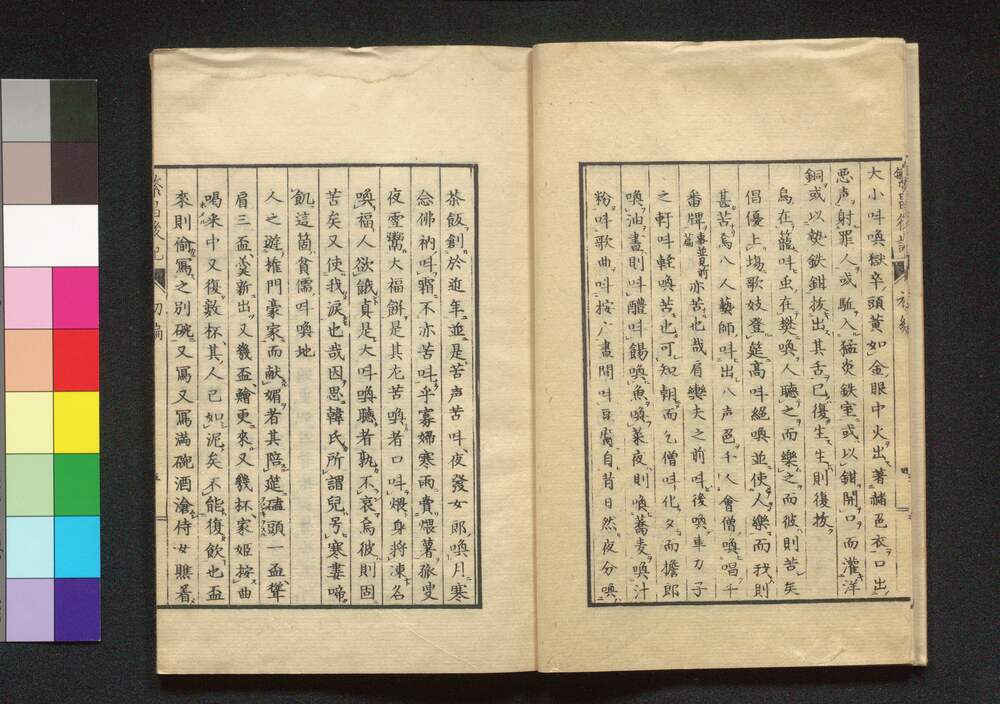 大小呌喚獄卒頭黄如金眼中火出著赭色衣口出
悪声射罪人或駈入猛炎鉄室或以鉗開口而灌洋
銅或以熱鉄鉗抜出其舌已復生生則復抜
鳥在籃呌虫在樊喚人聴之而樂之而彼則苦矣
倡優上塲歌妓登筵高呌絕喚並使人樂而我則
甚苦焉八人藝師呌出八声色千人會僧喚唱千
番牌事並見前篇亦苦也哉肩轝夫之前呌後喚車力子
之軒呌軽喚苦也可知朝而乞僧呌化夕而擔郎
喚油晝則呌醴呌餳喚魚喚菜夜則喚蕎麦喚汁
粉呌歌曲呌按八晝間呌豆腐自昔日然夜分喚
茶飯創於近年並是苦声苦呌夜發女郎喚月寒
念佛衲呌霜不亦苦呌乎寡婦寒雨賣煨薯旅叟
夜雪鬻大福餅是其尤苦喚者口呌煨身將凍名
喚福人欲餓真是大呌喚聴者孰不哀焉彼則固
苦矣又使我淚也哉因思韓氏所謂兒号寒妻啼
飢這箇貧儒呌喚地
人之踵権門豪家而献媚者其陪筵磕頭一盃聳
肩三盃羹新出又幾盃鱠更來又幾杯家姬按曲
喝采中又復數杯其人已如泥矣不能復飲也盃
來則偷寫之別碗又寫又寫滿碗酒滄侍女瞧看
繁昌後記
初編